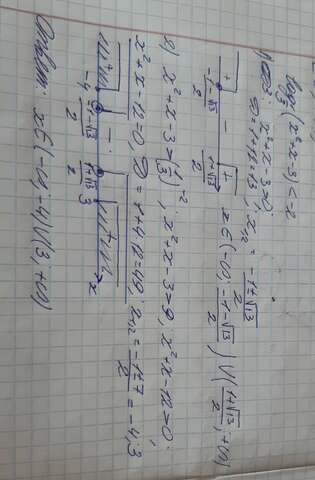 log₁/₃(x²+x-3)<-2
1) ОДЗ: x²+x-3>0;
D=1+12=13; x₁,₂ = (-1±√13)/2
+ - + (-1-√13)/2 (-1+√13)/2 x∈(-∞; (-1-√13)/2)∪((-1+√13)/2; +∞)
2) x²+x-3>(1/3)⁻²; x²+x-3>9; x²+x-12>0;
x²+x-12=0; D=1+48=49; x₁,₂ = (-1±7)/2 = -4; 3
+ - + -4 (-1-√13)/2 (-1+√13)/2 3 x
Ответ: x∈(-∞; -4)∪(3; +∞)